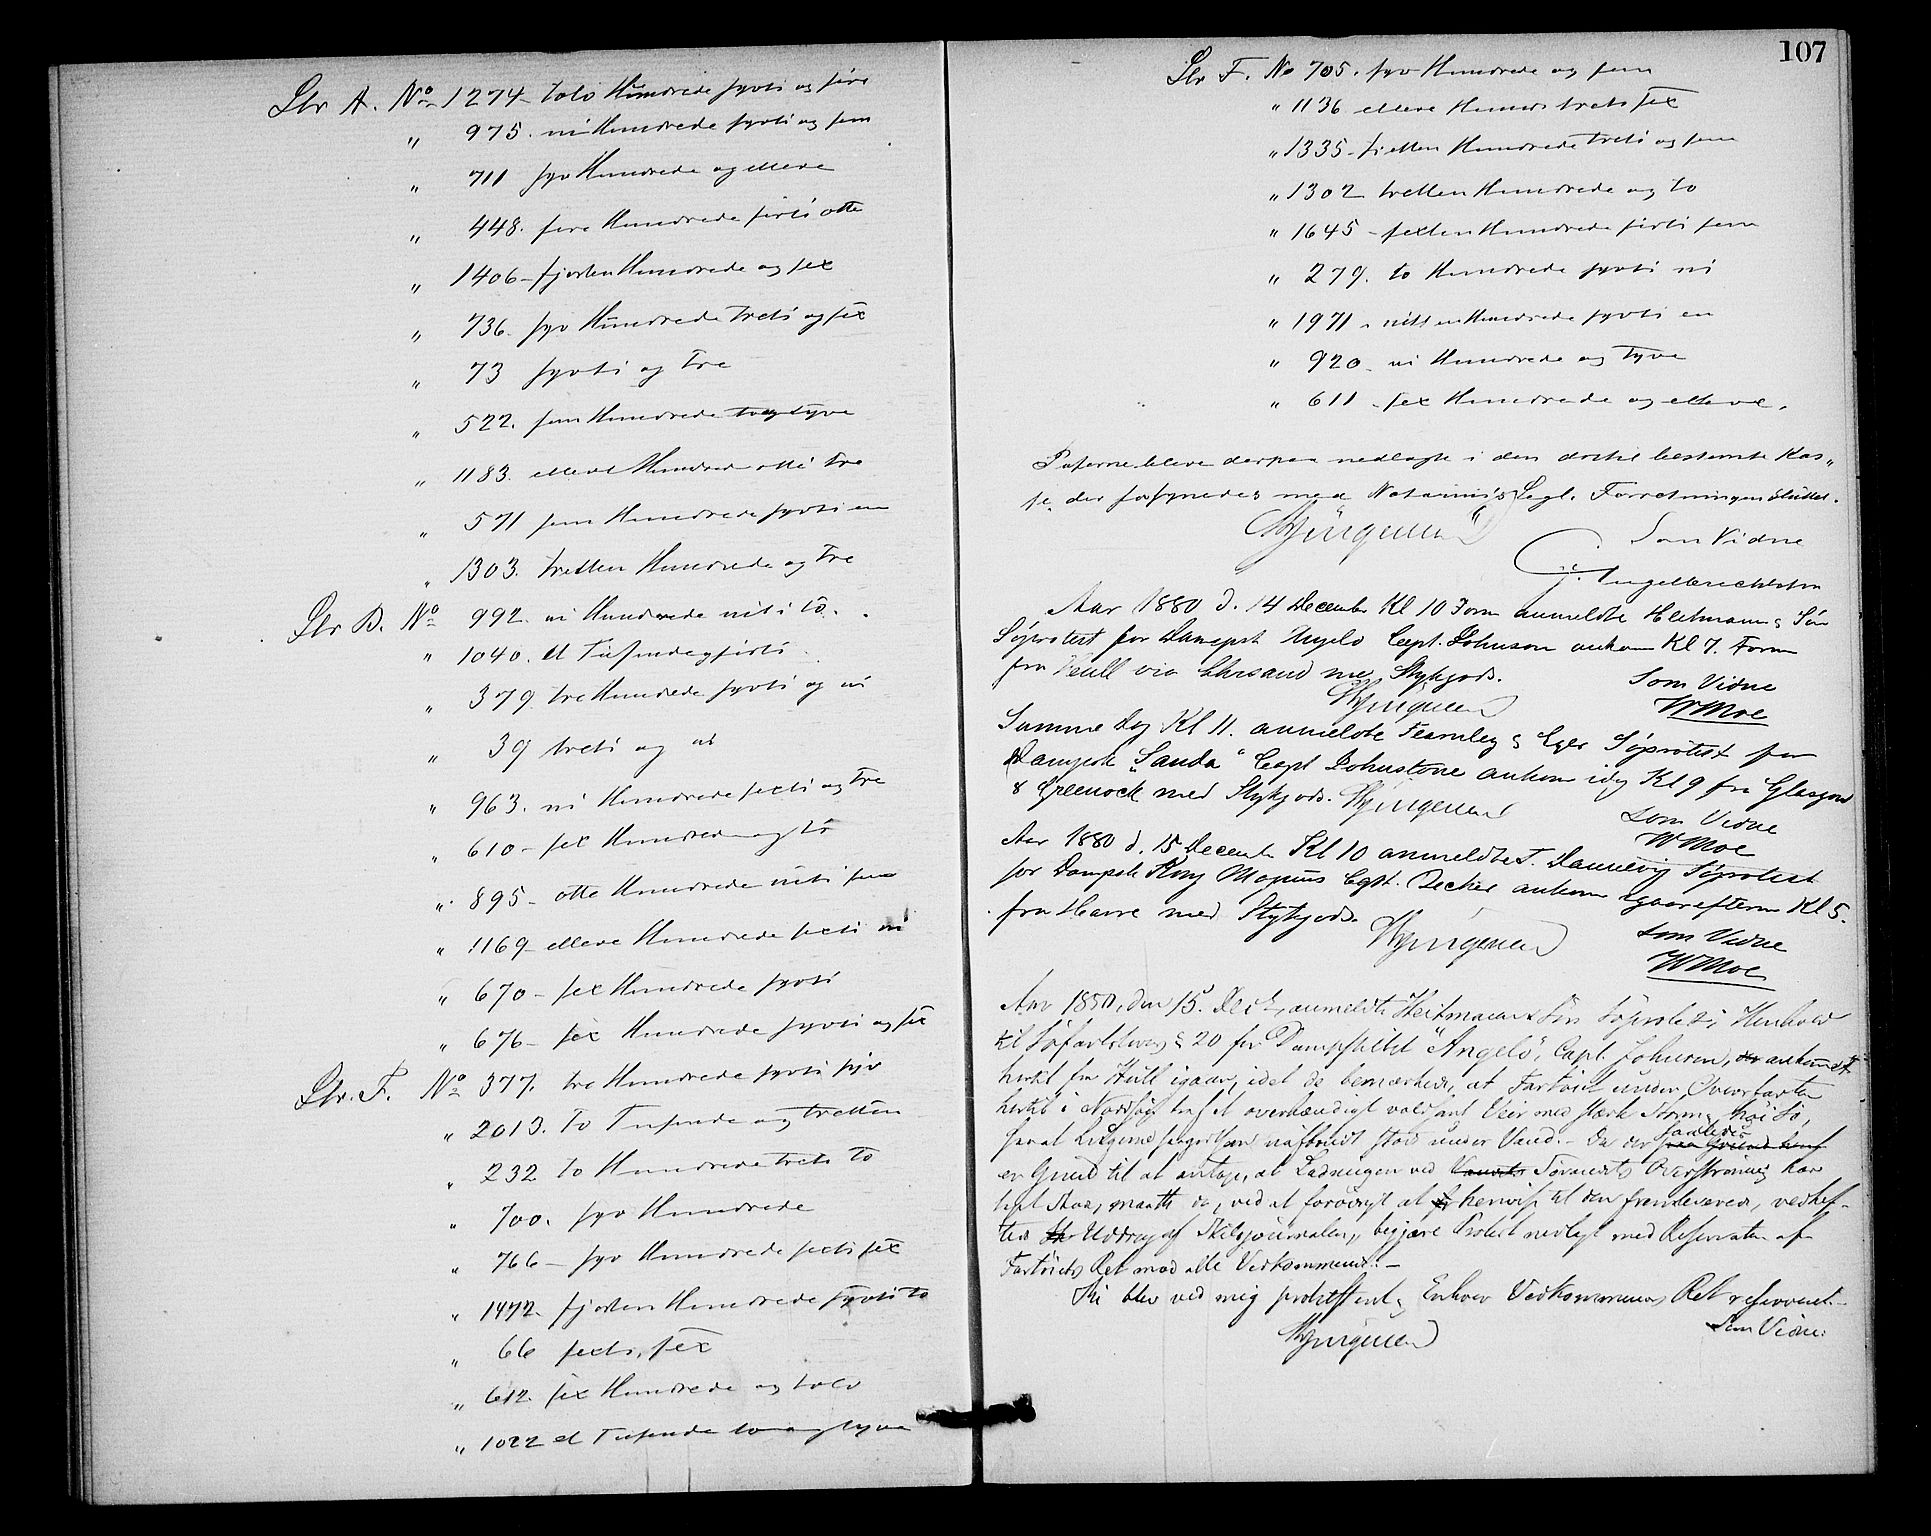 Ltr A. No 1274 – tolv Hundrede syvti og fire
" 975. ni Hundrede syvti og fem
" 711 syv Hundrede og elleve
" 448. fire Hundrede firti otte
" 1406 – fjorten Hundrede og sex
" 736. syv Hundrede treti og sex
" 73 syvti og tre
" 522. fem Hundrede to og tyve
" 1183. elleve Hundrede otti tre
" 571 fem Hundrede syvti en
" 1303. tretten Hundrede og tre
Ltr D. No 992. ni Hundrede niti to.
" 1040. et Tusinde og firti
" 379 tre Hundrede syvti og ni
" 39 treti og ni
" 963. ni Hundrede sexti og tre
" 610 – sex Hundrede og ti
" 895 – otte Hundrede niti fem
" 1169 – elleve Hundrede sexti ni
" 670 – sex Hundrede syvti
" 676 – sex Hundrede syvti og sex
Ltr. F. No 377. tre Hundrede syvti syv
" 2013. to Tusinde og tretten
" 232 to Hundrede treti to
" 700. syv Hundrede
" 766 – syv Hundrede sexti sex
" 1472. fjorten Hundrede syvti to
" 66 sexti, sex
" 612. sex Hundrede og tolv
" 1022 et Tusinde to og tyve
107
Ltr F. No 705. syv Hundrede og fem
" 1136 elleve Hundrede treti sex
" 1335 – tretten Hundrede treti og fem
" 1302 tretten Hundrede og to
" 1645 – sexten Hundrede firti fem
" 279. to Hundrede syvti ni
" 1971 – nitten Hundrede syvti en
" 920 – ni Hundrede og tyve
" 611 – sex Hundrede og elleve.
bleve derpaa nedlagte i den dertil bestemte Kas„
se, der forsynedes med Notarius's Segl. Forretningen sluttet.
Som Vidne
Engelbrechtsen
Aar 1880 d. 14 December Kl 10 Form anmeldte Heitmann & Søn
Søprotest for Dampsk Angelo Capt. Johnson ankom Kl 7. Form
fra Hull via Chrsand med Stykgods.
Som Vidne
W Moe
Samme Dag Kl 11. anmeldte Fearnley & Eger Søprotest for
Dampsk "Sanda" Capt Johnstone ankom idag Kl 9 fra Glasgow
& Greenock med Stykgods.
Som Vidne
W Moe
Aar 1880 d. 15 December Kl 10 anmeldte T. Dannevig Søprotest
for Dampsk Kong Magnus Capt. Decker ankom igaar efterm Kl 5.
fra Havre med Stykgods.
Som Vidne
W Moe
Aar 1880, den 15. Decb, anmeldte Heitmann & Søn Søprotest i Henhold
til Søfartsloven § 20 for Dampskibet "Angelo", Capt. Johnson, ankommet
hertil fra Hull igaar, idet de bemærkede, at Fartøiet under Overfarten
hertil i Nordsøen traf et overhændigt voldsomt Veir med stærk Storm & høi Sø,
saa at Lugerne uafbrudt stod under Vand. – Da der saaledes
er Grund til at antage, at Ladningen ved Søvandets Overstrømning har
lidt Skade, maatte de, ved at forøvrigt at henvise til den fremleverede, vedhef-
tede Uddrag af Skibsjournalen, begjære Protest nedlagt med Reservation af
Fartøiets Ret mod alle Vedkommende. –
Thi blev ved mig protesteret & Enhver Vedkommendes Ret reserveret. –
Som Vidne: